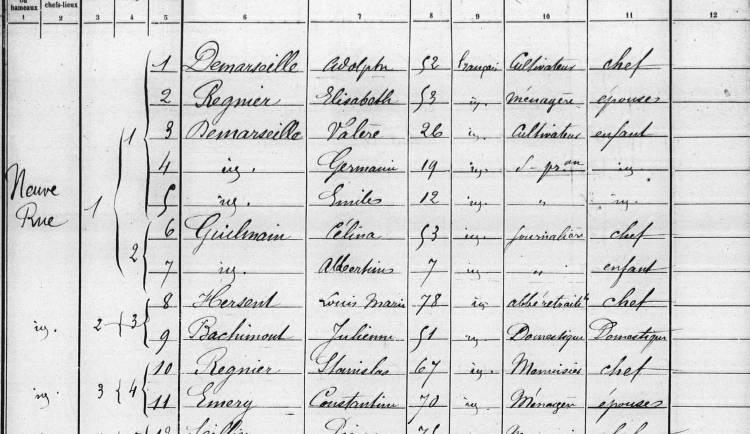 hameaux chefs-lieux
1 2 3 4 5 6 7 8 9 10 11 12
1 Demarseille Adolphe 52 Français Cultivateur chef
2 Regnier Elisabeth 53 id. ménagère épouse
1 3 Demarseille Valère 26 id. Cultivateur enfant
4 id. Germain 19 id. id.
Neuve 1 5 id. Emile 12 id. " id.
Rue 6 Guilmain Célina 53 id. journalière chef
2 7 id. Albertine 7 id. " enfant
8 Hersent Louis Marie 78 id. abbé retraité chef
id. 2 3 9 Bachimont Julienne 51 id. Domestique Domestique
10 Regnier Stanislas 67 id. Menuisier chef
id. 3 4 11 Emery Constantine 70 id. Ménagère épouse
12